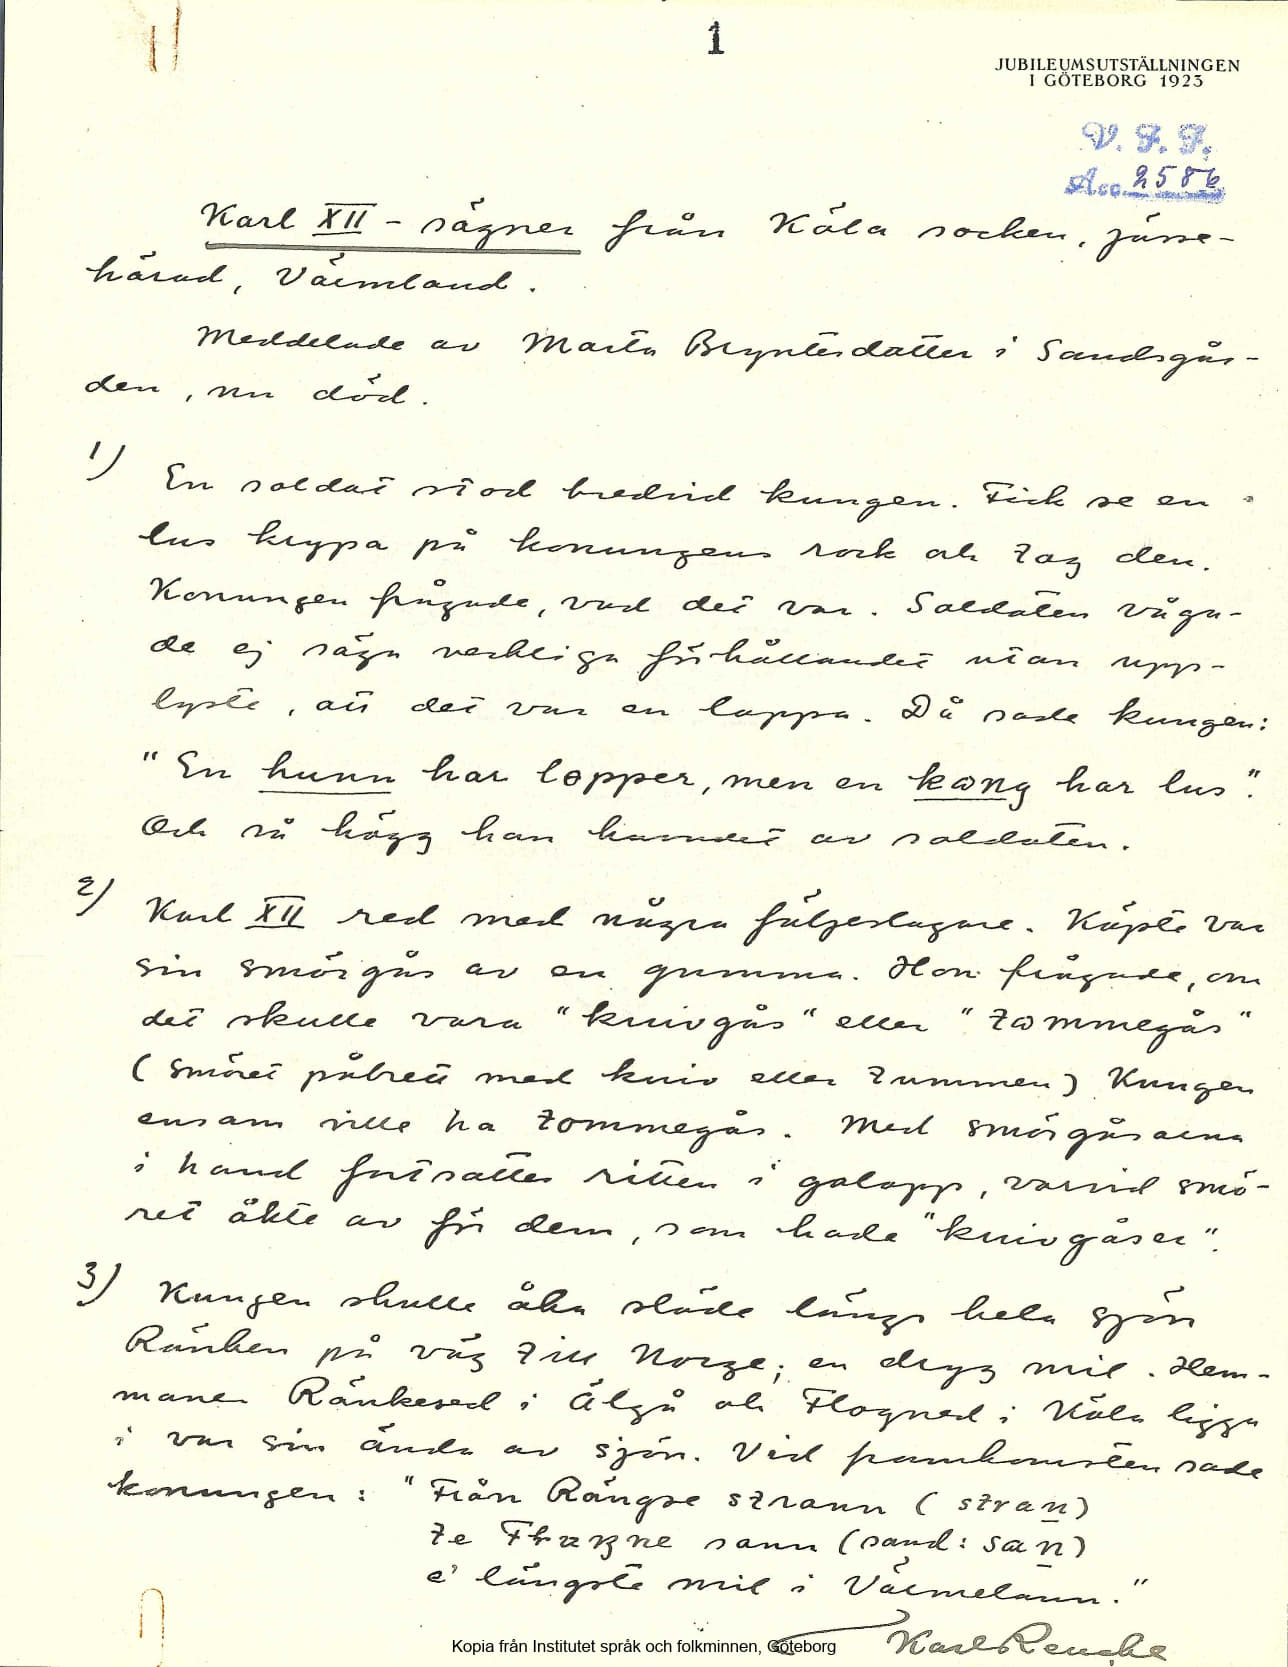 1
JUBILEUMSUTSTÄLLNINGEN
I GÖTEBORG 1923
V. F. F.
Acc. 2586
Karl XII - sägner från Köla socken, Jösse-
härad, Värmland.
Meddelade av Marta Bryntesdotter i Sandsgår-
den, nu död.
1) En soldat stod bredvid kungen. Fick se en
lus krypa på konungens rock och tog den.
Konungen frågade, vad det var. Soldaten våga-
de ej säga verkliga förhållandet utan upp-
lyste, att det var en loppa. Då sade kungen:
"En hunn har lopper, men en kong har lus".
Och så högg han huvudet av soldaten.
2) Karl XII red med några följeslagare. Köpte var
sin smörgås av en gumma. Hon frågade, om
det skulle vara "knivgås" eller "tommegås"
(smöret påbrett med kniv eller tummen) Kungen
ensam ville ha tommegås. Med smörgåsarna
i hand fortsattes ritten i galopp, varvid smö-
ret åkte av för dem, som hade "knivgåser".
3) Kungen skulle åka släde längs hela sjön
Ränken på väg till Norge; en dryg mil. Hem-
manen Ränkesed i Älgå och Flogned i Köla ligga
i var sin ända av sjön. Vid framkomsten sade
konungen: "Från Rängse strann (stran)
te sann (sand: san)
e' längste mil i Värmelann."
Karl Rencke
Kopia från Institutet språk och folkminnen, Göteborg